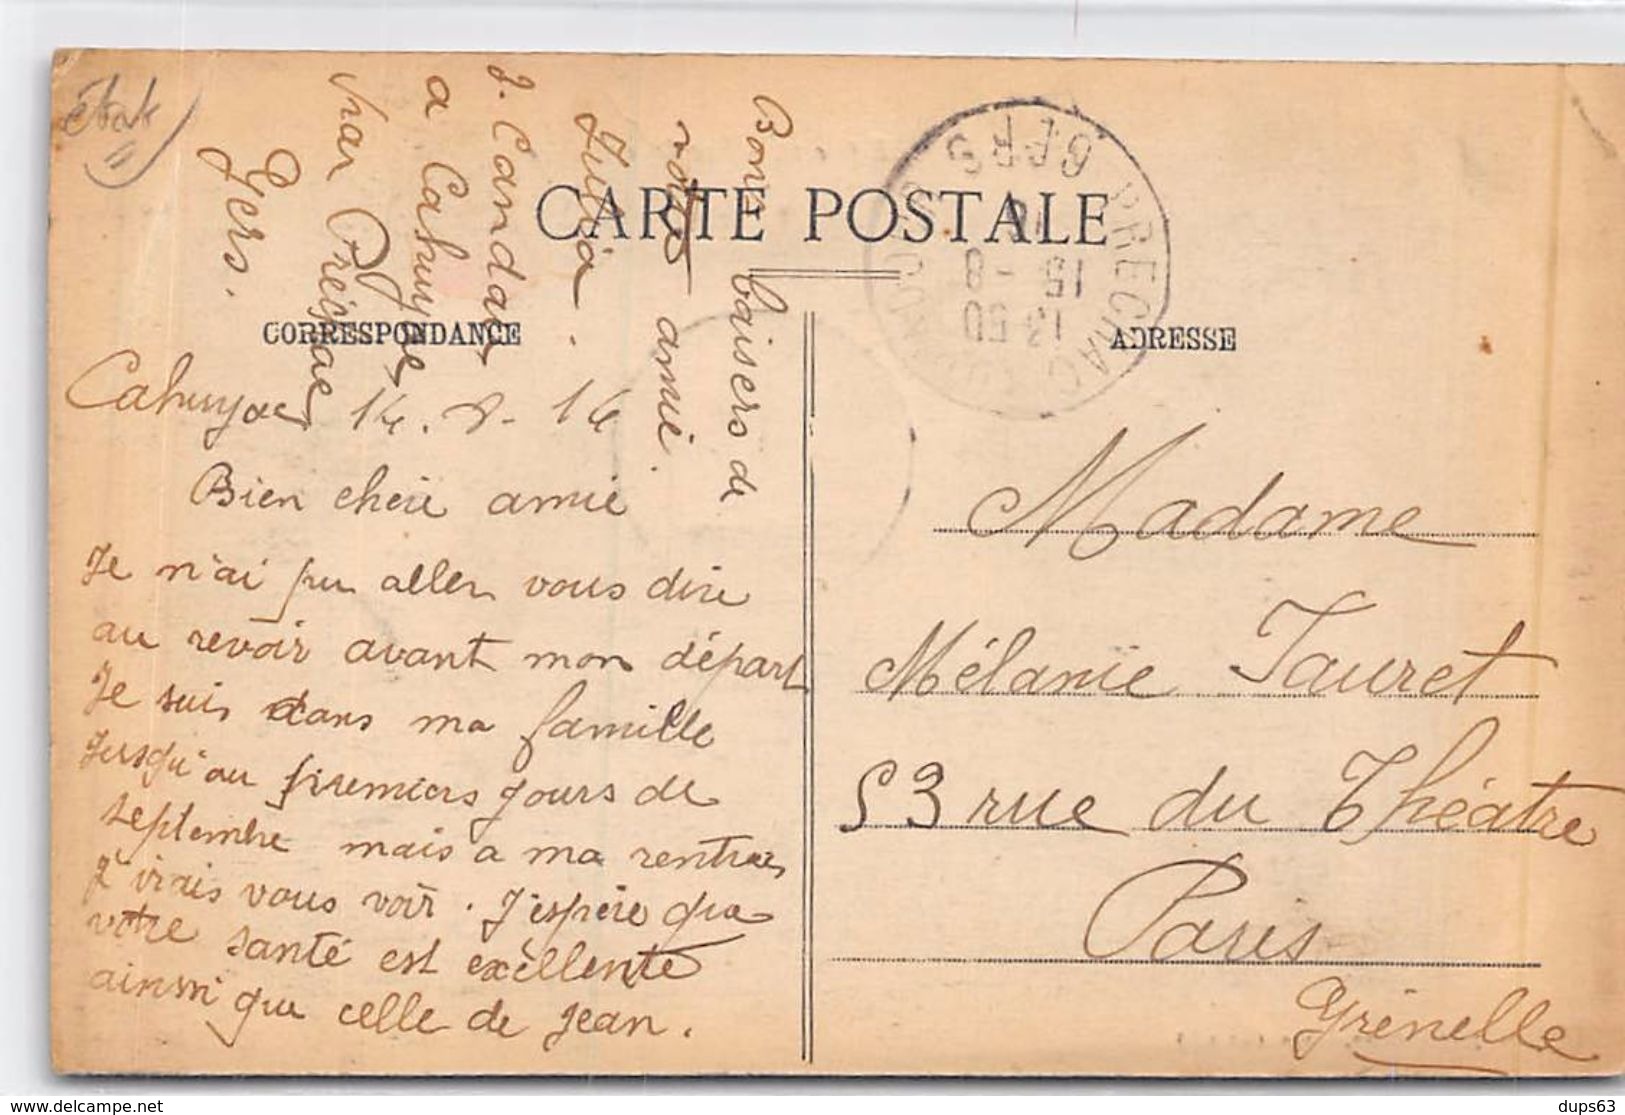 état
CARTE POSTALE
CORRESPONDANCE
ADRESSE
PRECHAC
GERS
13 50
15 - 8
16
Cahuzac 14. 8. 16
Bien cheie amie
Je n'ai pu aller vous dire
au revoir avant mon départ
Je suis dans ma famille
Jusqu'au premiers jours de
septembre mais a ma rentree
J'irais vous voir. J'espère que
votre santé est excèllente
ainsi que celle de Jean.
Bons baisers de
votre amie.
Julia.
J. Candau
a Cahuzac
par Preignac
Gers.
Madame
Mélanie Tauret
53 rue du Théatre
Paris
Grénelle
dups63